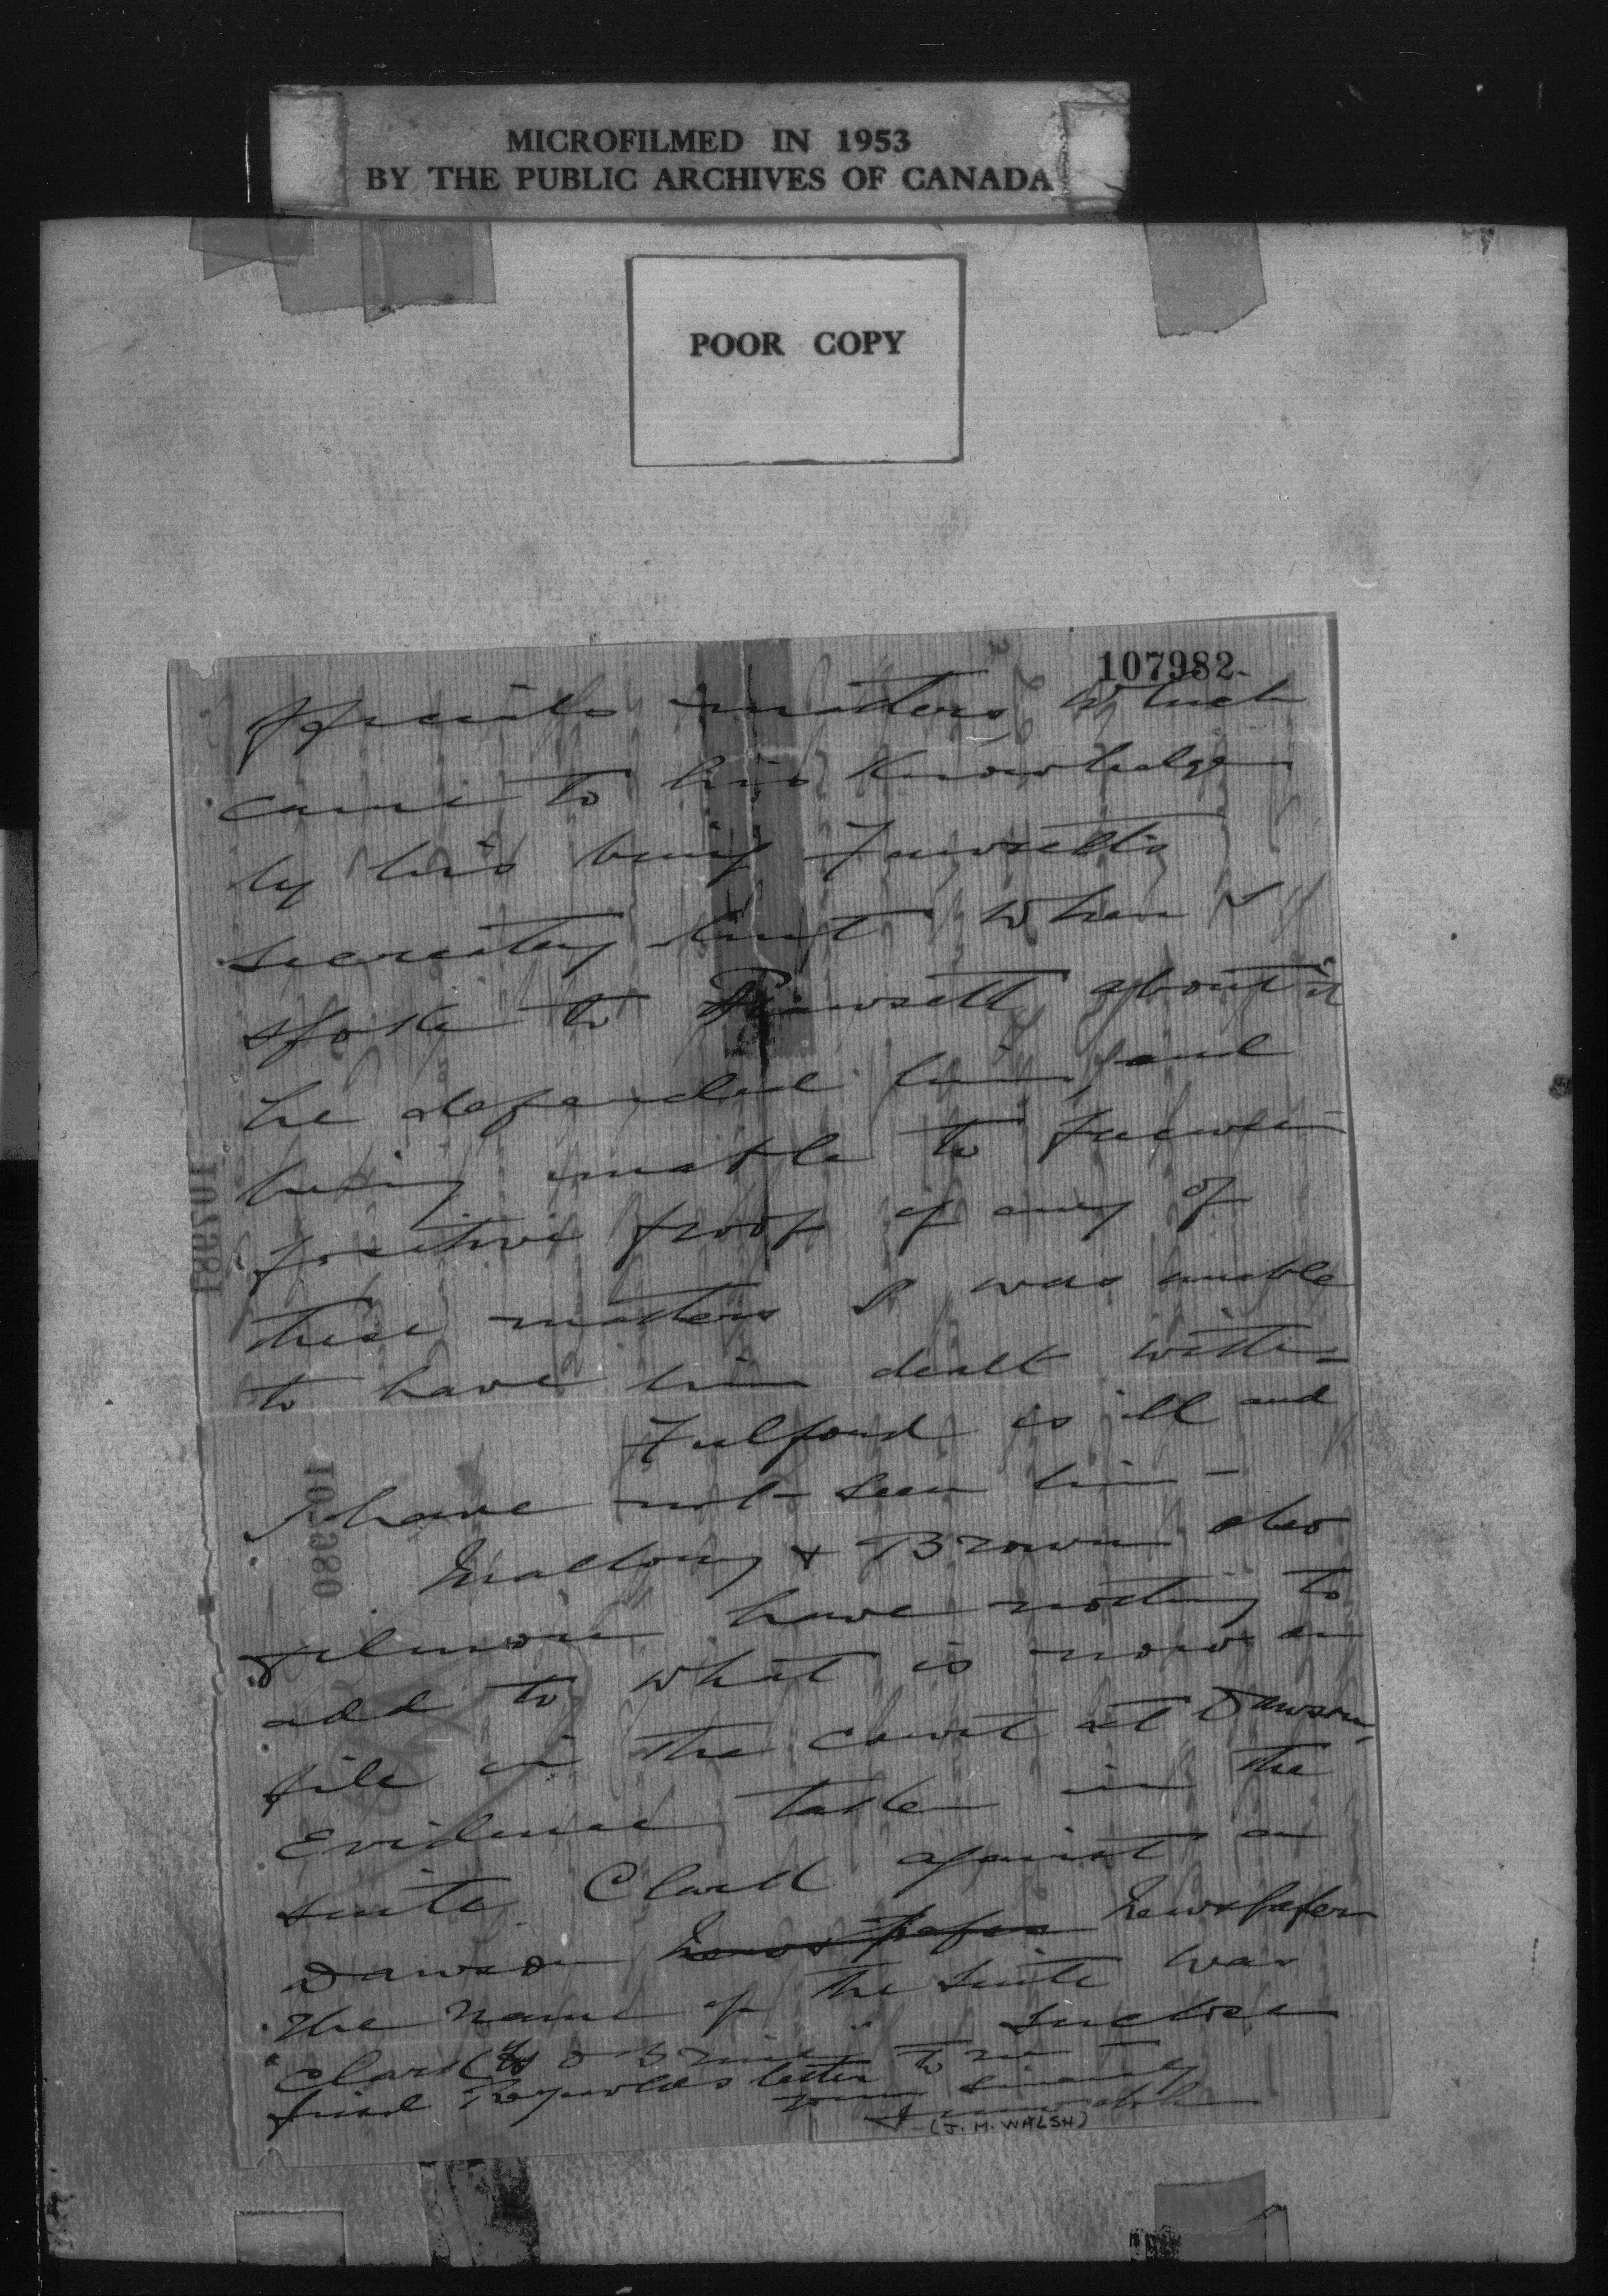 MICROFILMED IN 1953
BY THE PUBLIC ARCHIVES OF CANADA
POOR COPY
107982
matters which
came to his knowledge
by his being Fawcetts
secretary but when I
spoke to Fawcett about it
he defended him, and
being unable to
positive proof of any of
these matters I was unable
to have him dealt with -
Fulford is ill and
I have not seen him -
& Brown also
have nothing to
add to what is now on
file in the court at Dawson,
Evidence taken in the
suite Clark against a
Dawson news paper newspaper
The name of the suite was
Clark
find Reynolds letter to me -
yours sincerely
(J. M. WALSH)
107981